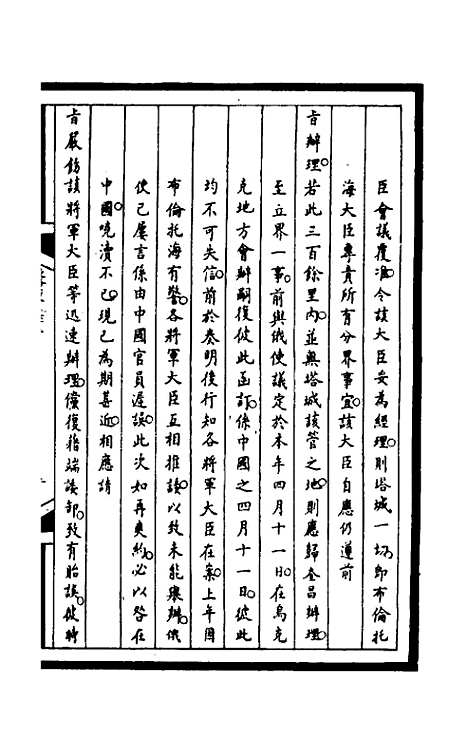 臣會議覆准令該大臣妥為經理則塔城一切即布倫托
海大臣專責所有分界事宜該大臣自應仍遵前
旨辦理若此三百餘里內並無塔城該管之地則應歸奎昌辦理
至立界一事前與俄使議定於本年四月十一日在烏克
克地方會辦嗣復彼此函訂係中國之四月十一日彼此
均不可失信前於奏明後行知各將軍大臣在案上年因
布倫托海有警各將軍大臣互相推諉以致未能舉辦俄
使已屢言係由中國官員遲誤此次如再爽約必以咎在
中國嘵瀆不已現已為期甚近相應請
旨嚴飭該將軍大臣等迅速辦理儻復藉端諉卸致有貽誤彼時